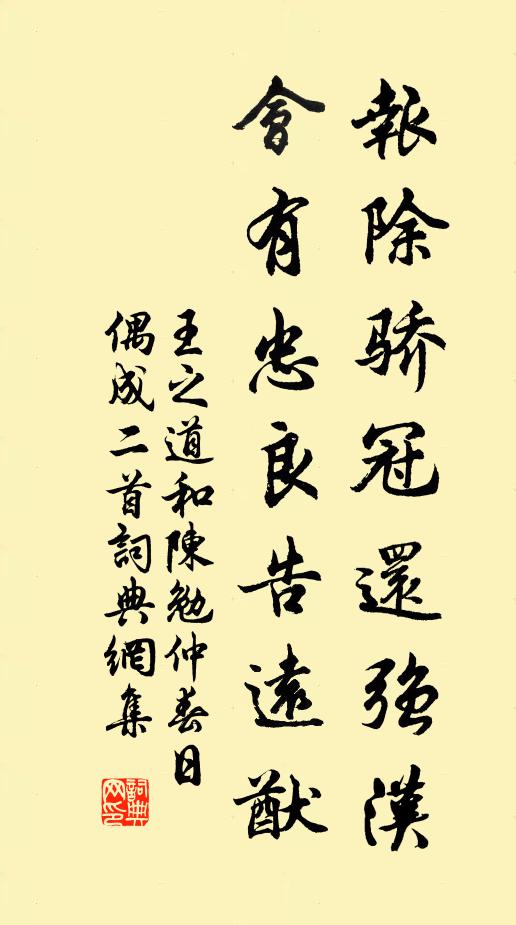 報除骄冠還强漢
會有忠良告遠猷
王之道和陳勉仲春日
偶成二首詞典網集
詞典
网印